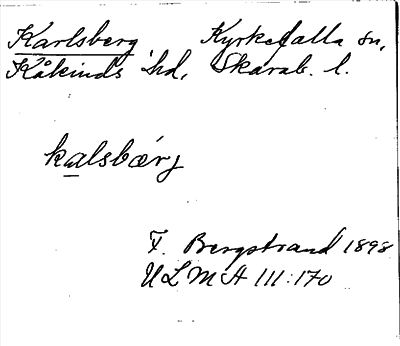 Karlsberg Kyrkefalla sn,
Kåkinds hd, Skarab. l.
kalsbærj
F. Bergstrand 1898
ULMA 111:170